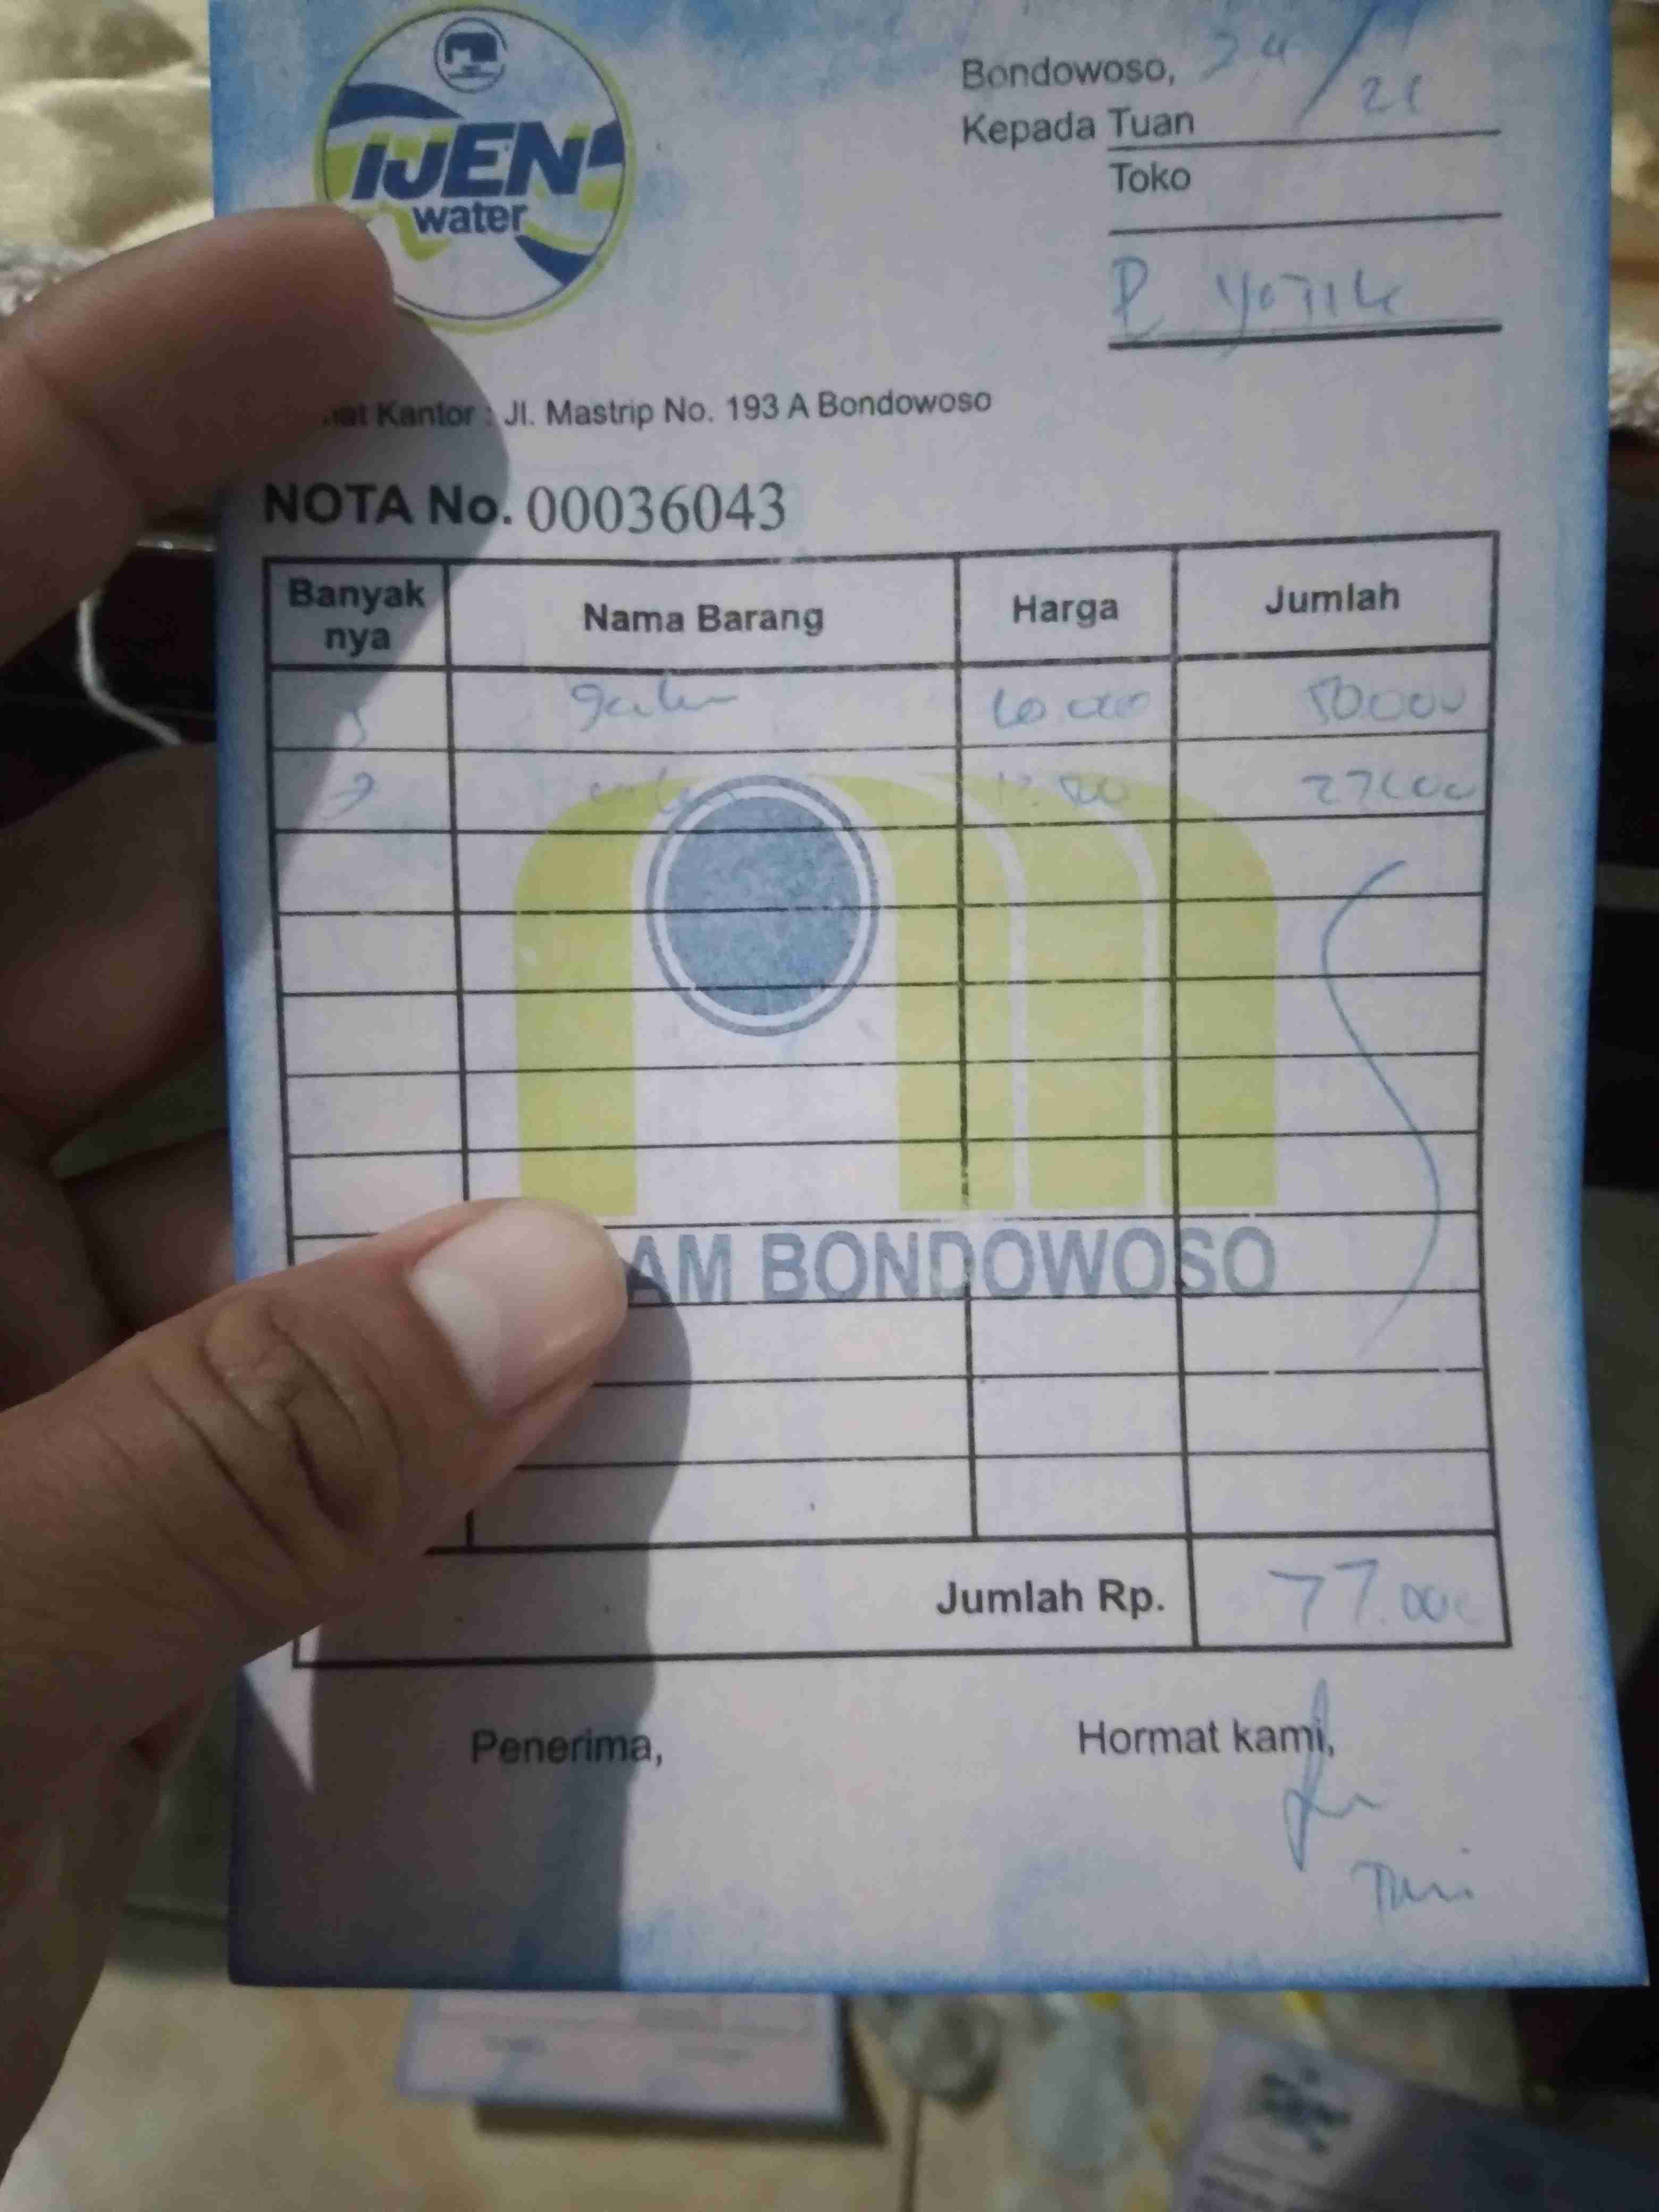 IJEN
water
Bondowoso, 24/
21
Kepada Tuan
Toko
P
at Kantor : Jl. Mastrip No. 193 A Bondowoso
NOTA No. 00036043
Banyak nya Nama Barang Harga Jumlah
5 galon 10.000 50.000
27.000
AM BONDOWOSO
Jumlah Rp. 77.000
Penerima, Hormat kami,